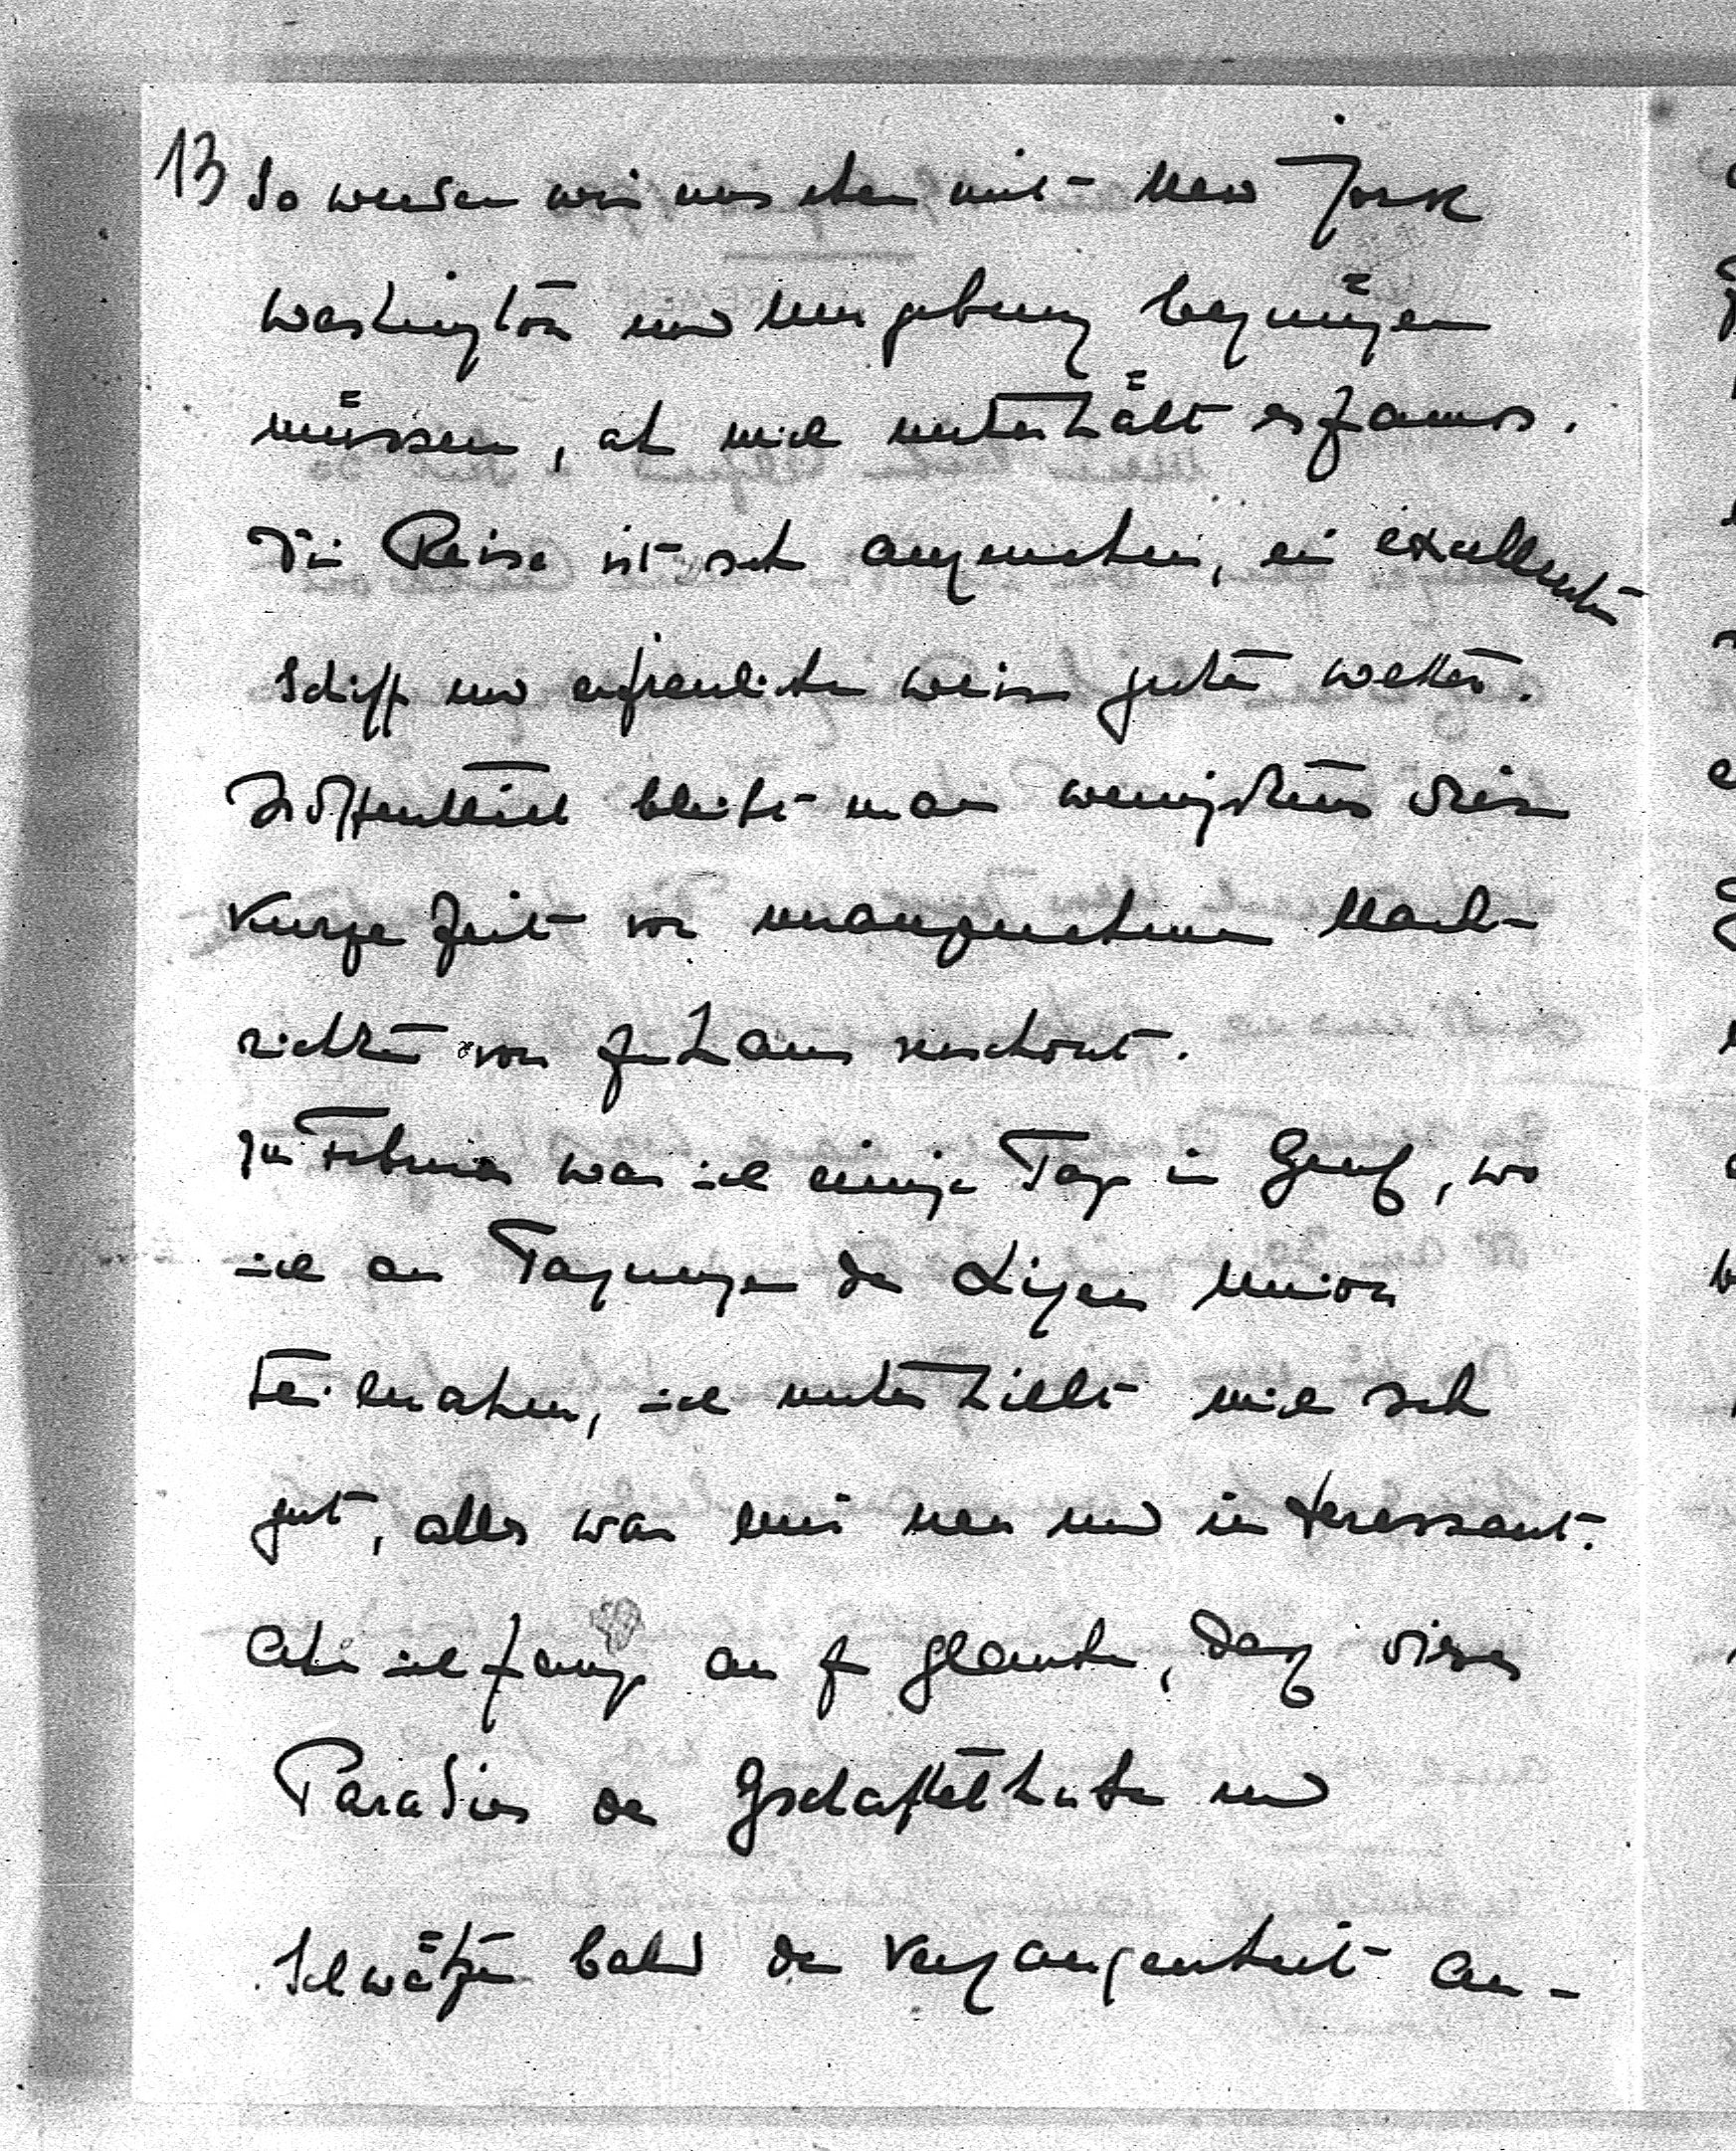 13 So werden wir uns eben mit New York
Washington und Umgebung begnügen
müssen, ab mich unterhält es famos.
Die Reise ist sehr angenehm, ein excellentes
Schiff und erfreulicher weise gutes Wetter.
Hoffentlich bleibt man wenigstens diese
kurze Zeit von unangenehmen Nach-
richten von zuhaus verschont.
Im Februar war ich einige Tage in Genf, wo
ich an Tagungen der Ligen Union
teilnahm, ich unterhielt mich sehr
gut, alles war mir neu und interessant.
Aber ich fange an zu glauben, daß dieses
Paradies der Gschaftelhuber und
Schwätzer bald der Vergangenheit an-